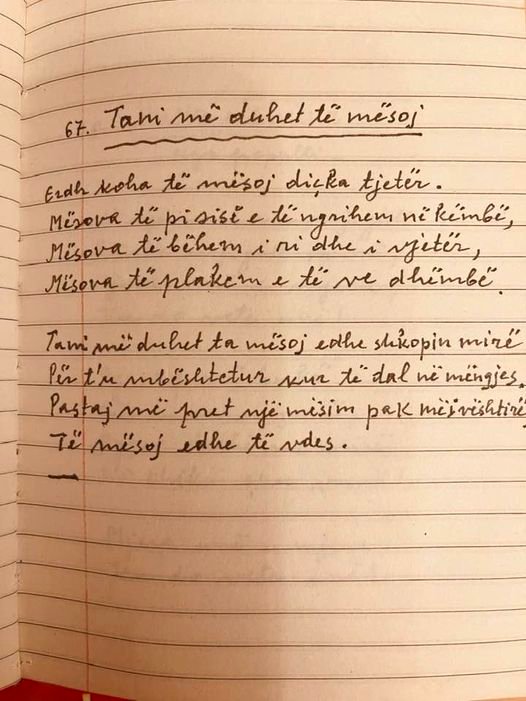 67. Tani më duhet të mësoj
Erdh koha të mësoj diçka tjetër.
Mësova të pi sisë e të ngrihem në këmbë,
Mësova të bëhem i ri dhe i vjetër,
Mësova të plakem e të ve dhëmbë.
Tani më duhet ta mësoj edhe shkopin mirë
Për t'u mbështetur kur të dal në mëngjes.
Pastaj më pret një mësim pak më i vështirë,
Të mësoj edhe të vdes.